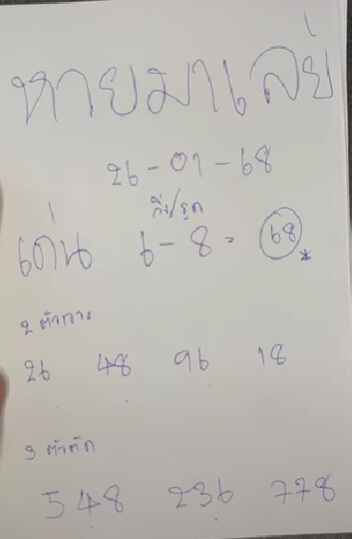 หวยมาเลย์
26-01-68
วิ่ง/รูด
เด่น 6-8= 68*
2 ตัวเจาะ
26 48 96 18
3 ตัวตัด
548 236 778